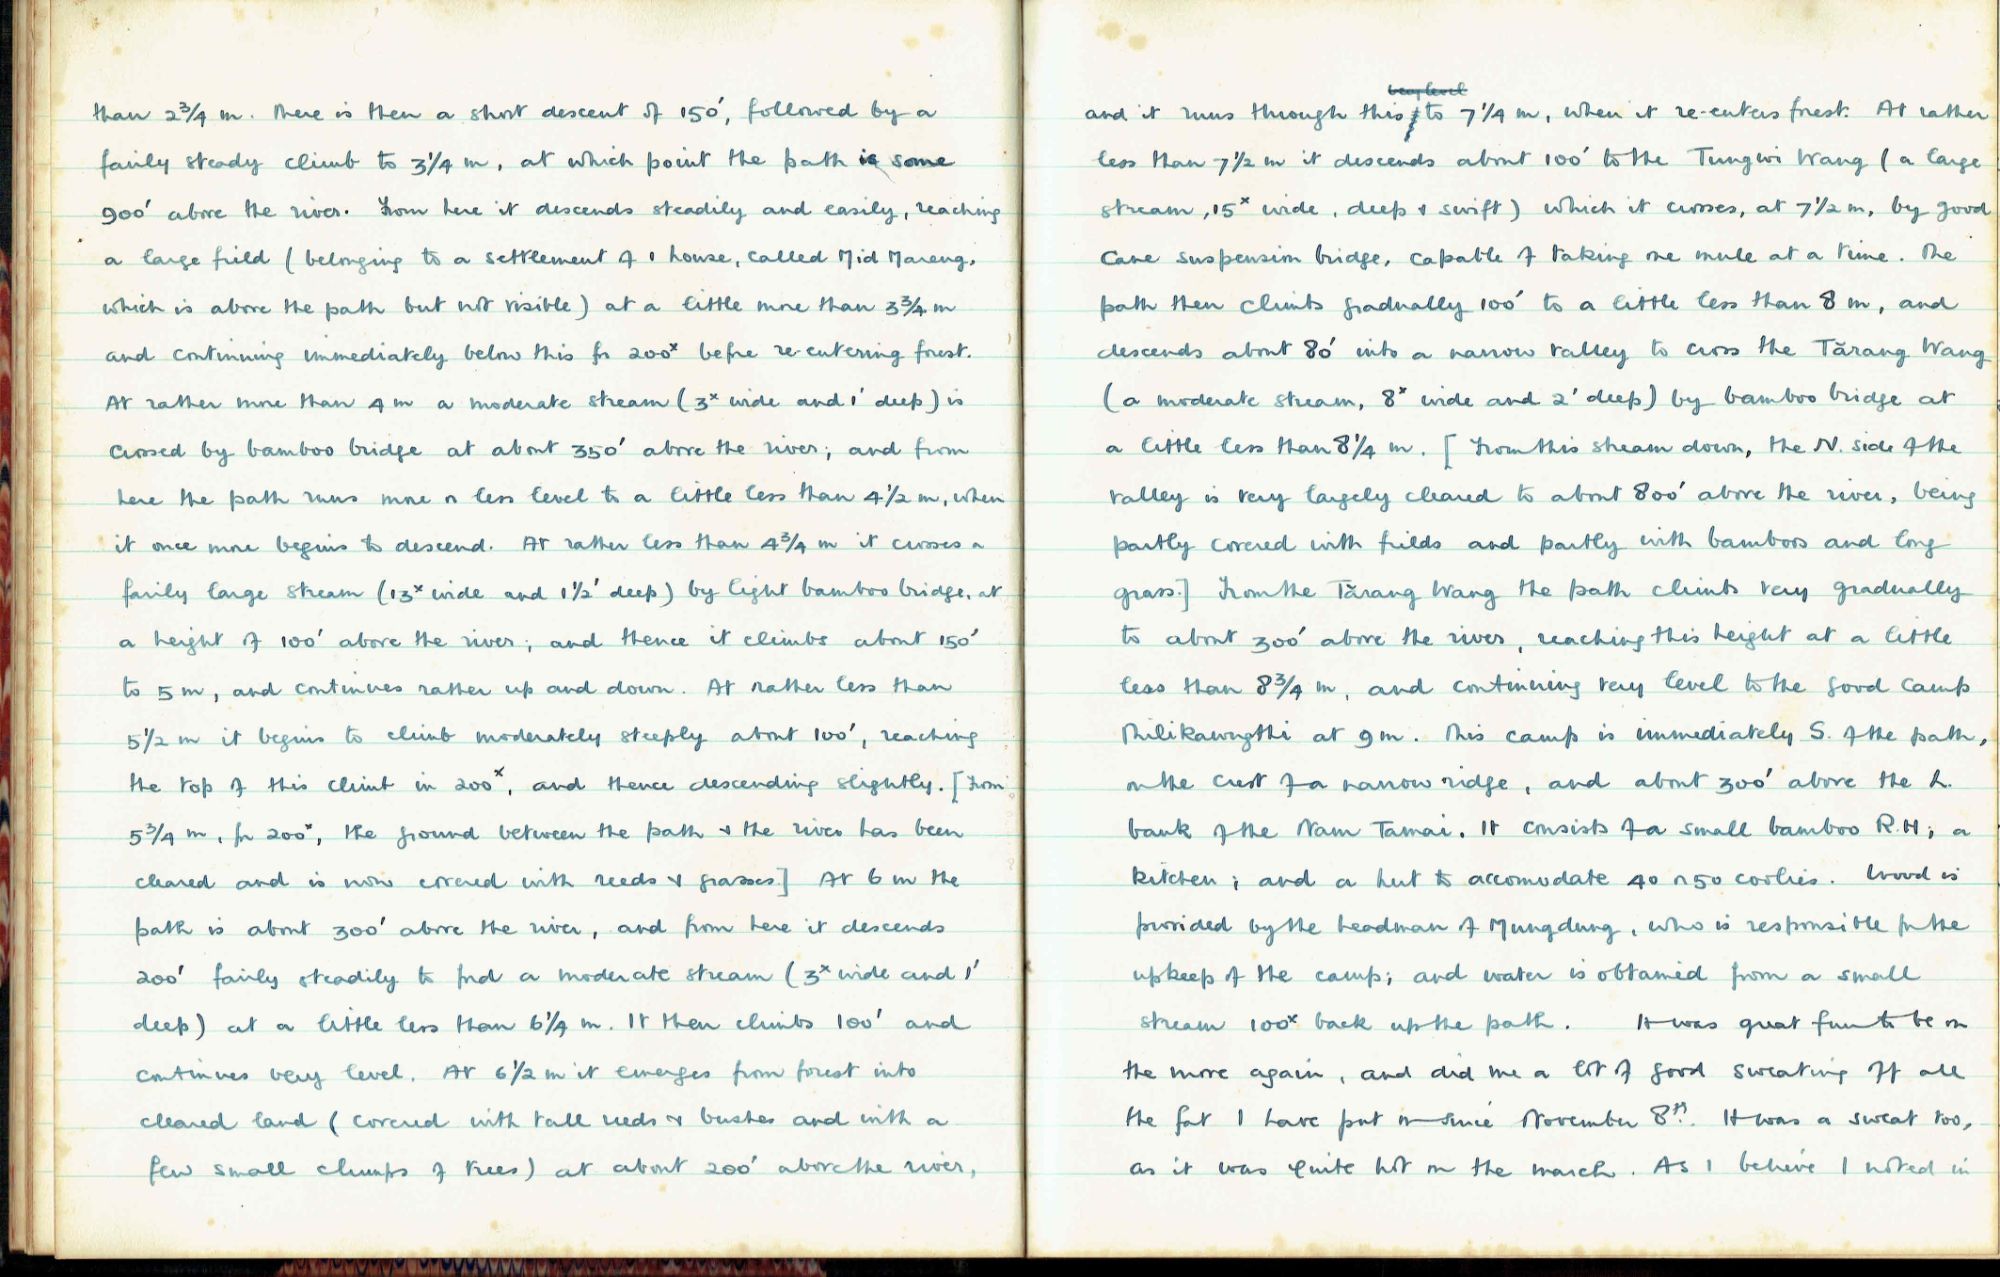 than 2¾ m. There is then a short descent of 150', followed by a
fairly steady climb to 3¼ m, at which point the path is some
900' above the river. From here it descends steadily and easily, reaching
a large field (belonging to a settlement of 1 house, called Mid Mareng,
which is above the path but not visible) at a little more than 3¾ m
and continuing immediately below this for 200ˣ before re-entering forest.
At rather more than 4 m a moderate stream (3ˣ wide and 1' deep) is
crossed by bamboo bridge at about 350' above the river; and from
here the path runs more or less level to a little less than 4½ m, when
it once more begins to descend. At rather less than 4¾ m it crosses a
fairly large stream (13ˣ wide and 1½' deep) by light bamboo bridge, at
a height of 100' above the river; and thence it climbs about 150'
to 5 m, and continues rather up and down. At rather less than
5½ m it begins to climb moderately steeply about 100', reaching
the top of this climb in 200ˣ, and thence descending slightly. [From
5¾ m, for 200ˣ, the ground between the path & the river has been
cleared and is now covered with reeds & grasses.] At 6 m the
path is about 300' above the river, and from here it descends
200' fairly steadily to ford a moderate stream (3ˣ wide and 1'
deep) at a little less than 6¼ m. It then climbs 100' and
continues very level. At 6½ m it emerges from forest into
cleared land (covered with tall reeds & bushes and with a
few small clumps of trees) at about 200' above the river,
very level
and it runs through this to 7¼ m, when it re-enters forest. At rather
less than 7½ m it descends about 100' to the Tungwi Wang (a large
stream, 15ˣ wide, deep & swift) which it crosses, at 7½ m, by good
cane suspension bridge, capable of taking one mule at a time. The
path then climbs gradually 100' to a little less than 8 m, and
descends about 80' into a narrow valley to cross the Tărang Wang
(a moderate stream, 8ˣ wide and 2' deep) by bamboo bridge at
a little less than 8¼ m. [From this stream down, the N. side of the
valley is very largely cleared to about 800' above the river, being
partly covered with fields and partly with bamboos and long
grass.] From the Tărang Wang the path climbs very gradually
to about 300' above the river, reaching this height at a little
less than 8¾ m, and continuing very level to the good camp
Thilikawngthi at 9 m. This camp is immediately S. of the path,
on the crest of a narrow ridge, and about 300' above the L.
bank of the Nam Tamai. It consists of a small bamboo R.H; a
kitchen; and a hut to accomodate 40 or 50 coolies. Wood is
provided by the headman of Mungdung, who is responsible for the
upkeep of the camp; and water is obtained from a small
stream 100ˣ back up the path. It was great fun to be on
the move again, and did me a lot of good sweating off all
the fat I have put on since November 8th. It was a sweat too,
as it was quite hot on the march. As I believe I noted in